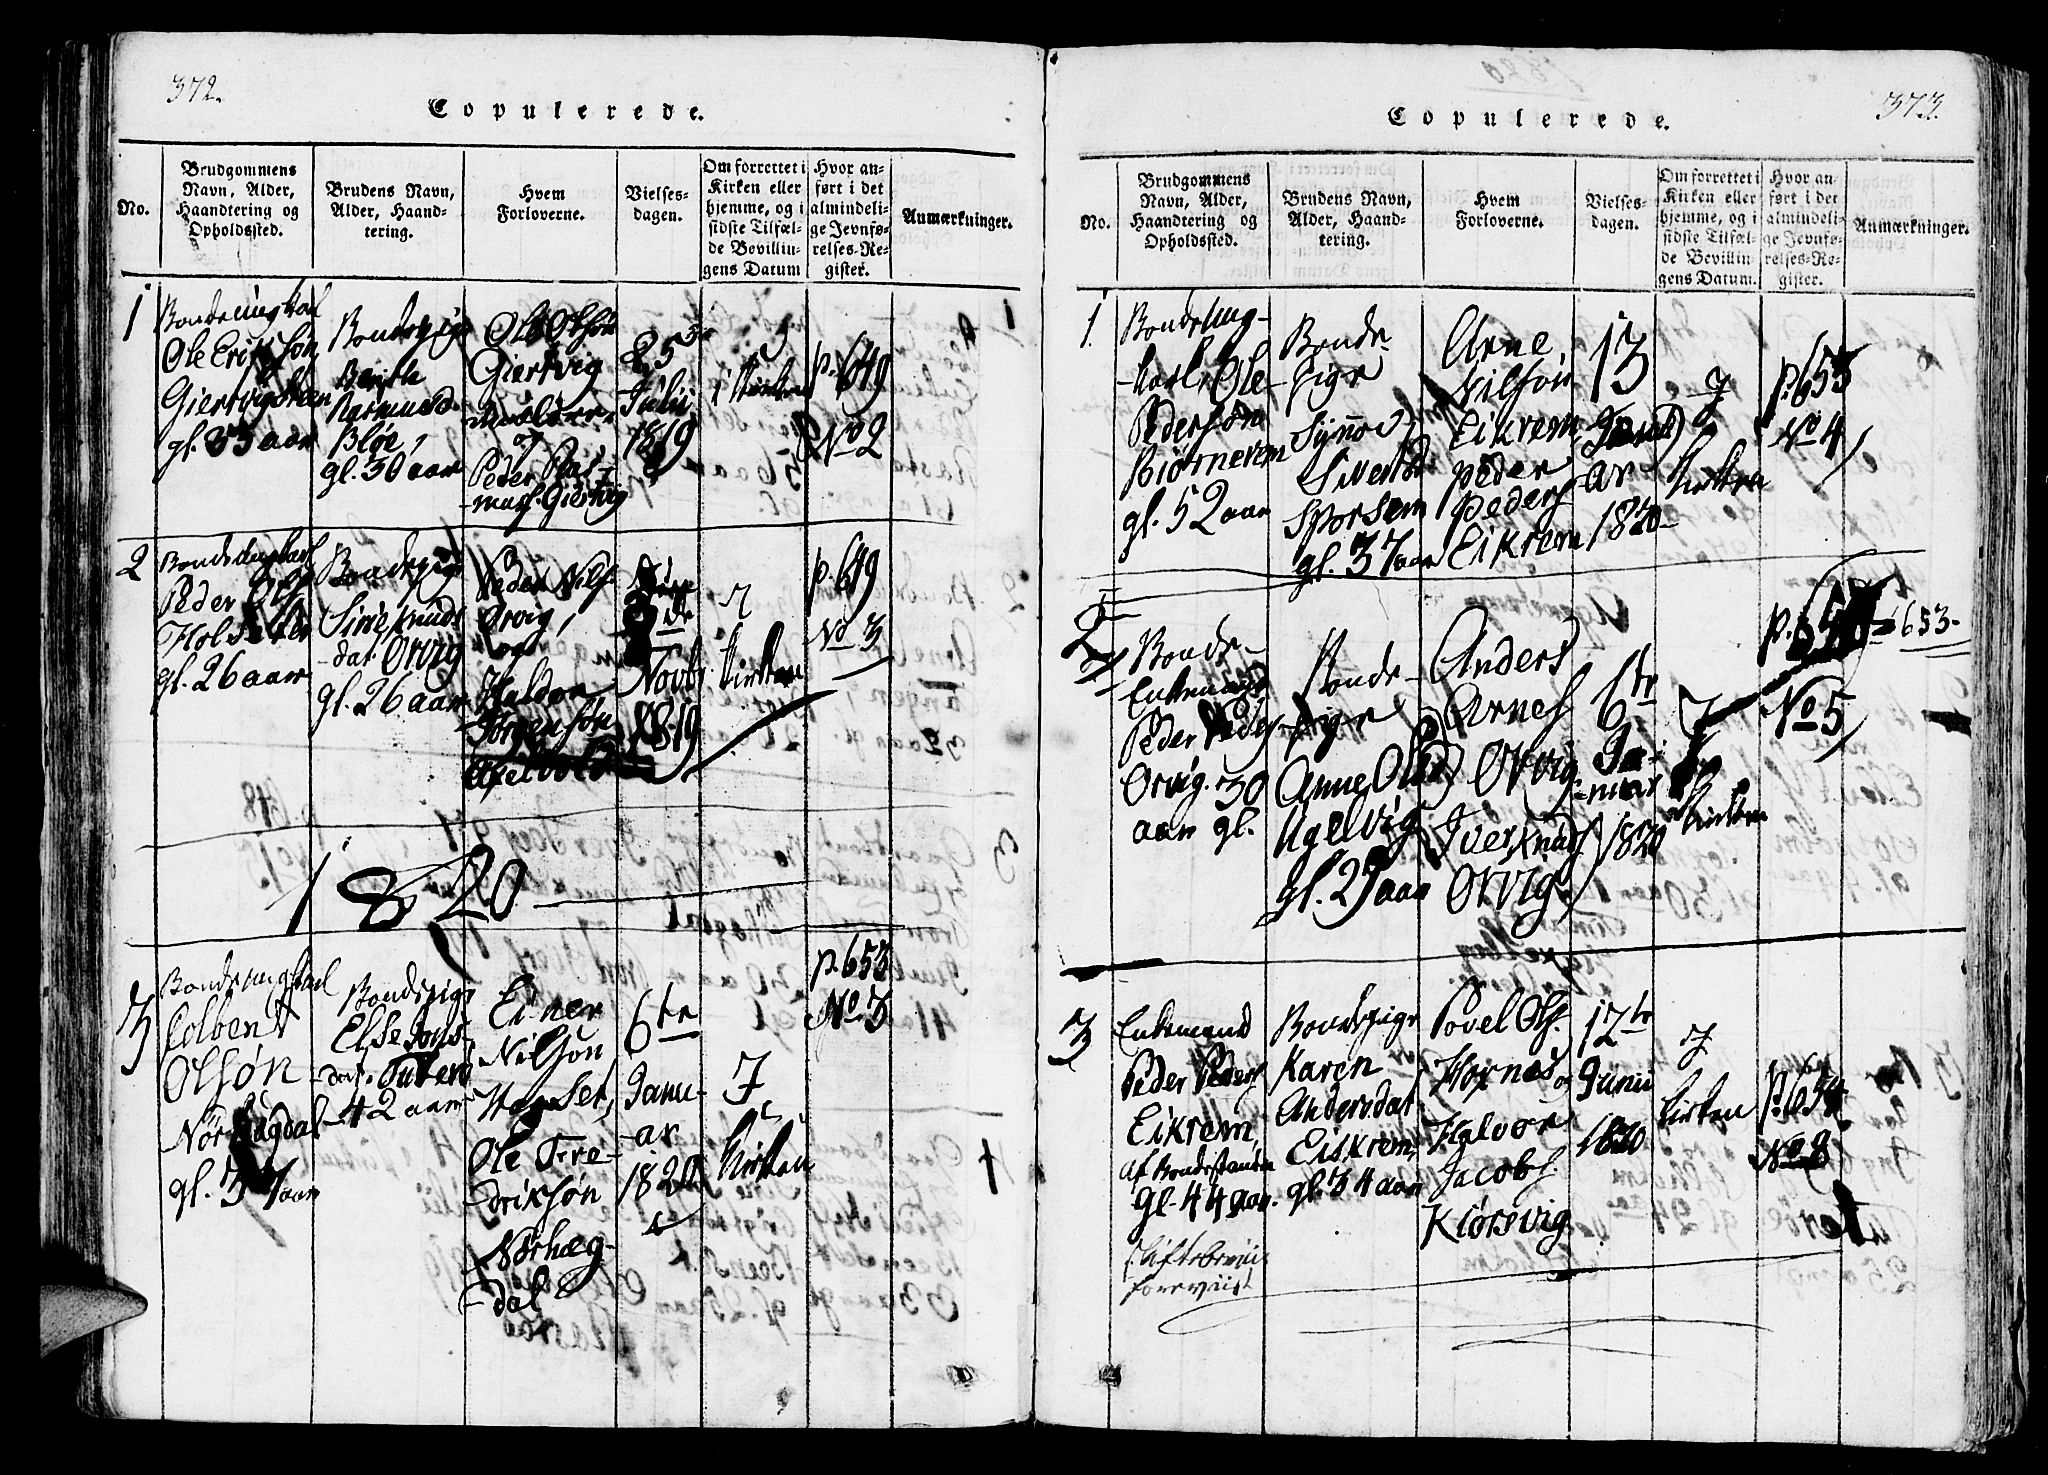 372.
Copulerede.
No.
Brudgommens
Navn, Alder,
Haandtering og
Opholdssted.
Brudens Navn,
Alder, Haand-
tering.
Hvem
Forloverne.
Vielses-
dagen.
Om forrettet i
Kirken eller
hjemme, og i
sidste Tilfæl-
de Bevillin-
gens Datum
Hvor an-
ført i det
almindeli-
ge Jevnfø-
relses-Re-
gister.
Anmærkninger.
1
Ole
gl. 33 aar
Bondepige
Berith
Rasmusd.
Bløe,
gl. 30 aar
Ole Olsøn
Giertvig
og
Peder Ras-
mus. Giertvig
25
Julii
1819
i Kirken
p. 649
No 2
2
Peder
gl. 26 aar
Bondepige
Siri Knuds
dat. Orvig
gl. 26 aar
Peder Nils.
Orvig,
og
Haldor
Jørgensøn
Novb.
1819
Kirken
p. 649
No 3
1820
3
Colbent
Olsøn
gl. 37 aar
Bondepige
Else Jons-
dat.
42 aar
Einer
Nilson
Ole Fre-
driksøn
Nørhæg-
dal
6te
Janu-
ar
1820
J
Kirken
p. 653
No 3
373.
Copulerede.
No.
Brudgommens
Navn, Alder,
Haandtering og
Opholdssted.
Brudens Navn,
Alder, Haand-
tering.
Hvem
Forloverne.
Vielses-
dagen.
Om forrettet i
Kirken eller
hjemme, og i
sidste Tilfæl-
de Bevillin-
gens Datum.
Hvor an-
ført i det
almindeli-
ge Jevnfø-
relses-Re-
gister.
Anmærkninger.
1.
Bonde Ung-
karl Ole
Pedersøn
Biørnerem
gl. 52 aar
Bonde-
pige
Synnov
Sivertsd.
Sporsem
gl. 37 aar
Arne
Nilson
Eikrem
Peder
Peders.
Eikrem
13
Janu
ar
1820
J
Kirken
p. 653
No 4
2
Bonde-
Enkemand
Peder Peders.
Orvig. 30
aar gl.
Bonde-
pige
Anne Olsd.
Ugelvig
gl. 29 aar
Anders
Arnes.
Orvig
Iver Knuds.
Orvig
6te
Ja-
nuar
1820
J
Kirken
653
No 5
3
Enkemand
Peder Peders.
Eikrem,
af Bondestanden
gl. 44 aar.
Skiftebreviis
foreviist
Bondepige
Karen
Andersdat
Eiskrem,
gl. 34 aar
Povel Ols.
Hornes og
Halvor
Jacobs.
Kiørsvig
12te
Junii
1820
J
Kirken
p. 654
No 8